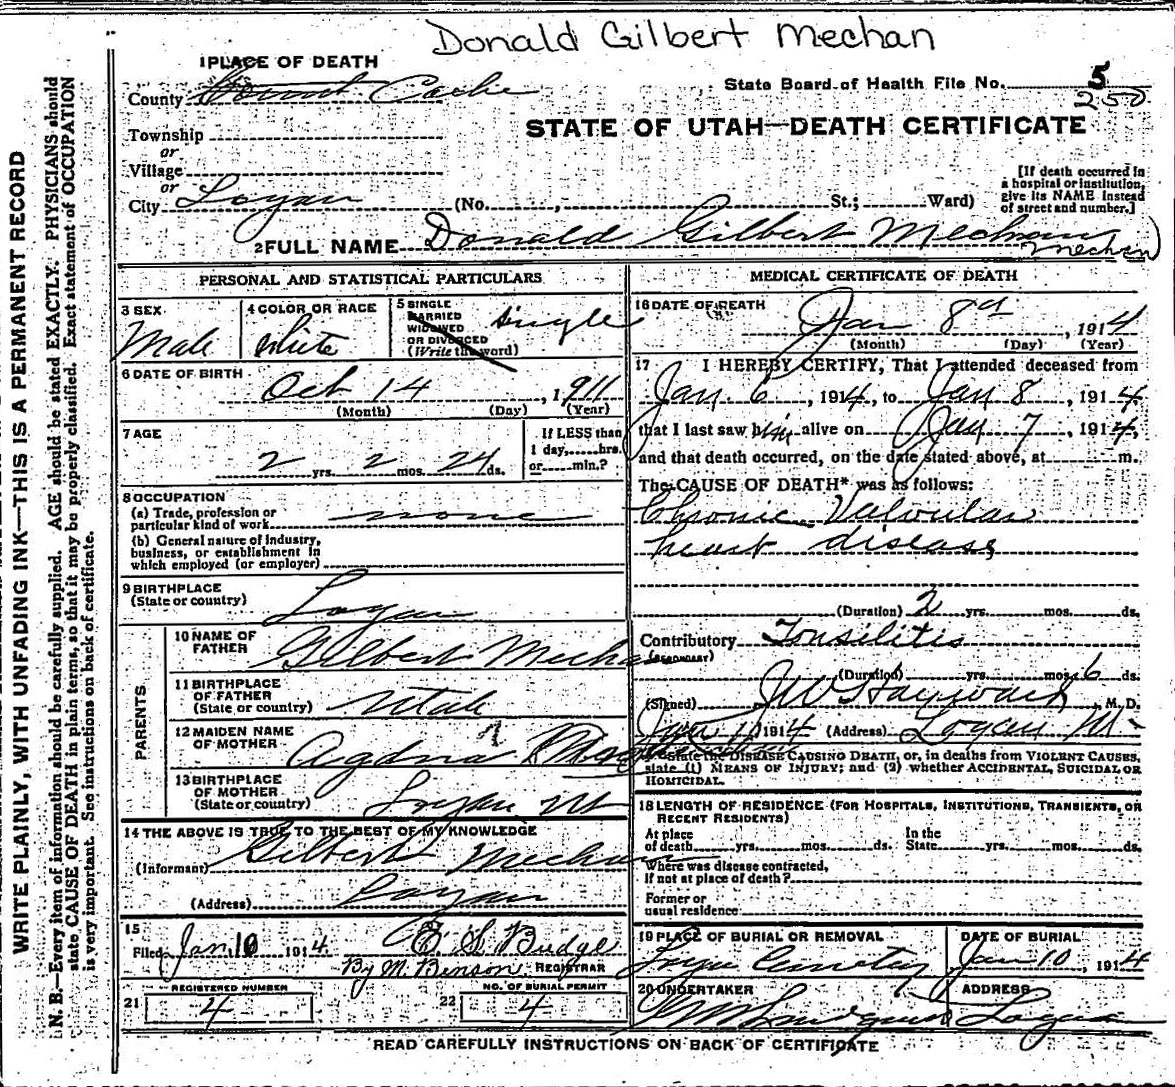 Donald Gilbert Mechan
1 PLACE OF DEATH
State Board of Health File No. 5
250
County Cache
STATE OF UTAH—DEATH CERTIFICATE
Township
or
Village
or
City Logan (No. , St.; Ward)
[If death occurred in
a hospital or institution,
give its NAME instead
of street and number.]
2 FULL NAME Donald Gilbert Mechan
Mechan
PERSONAL AND STATISTICAL PARTICULARS
3 SEX
Male
4 COLOR OR RACE
White
5 SINGLE
MARRIED
WIDOWED
OR DIVORCED
(Write the word)
Single
6 DATE OF BIRTH
Oct 14, 1911
(Month) (Day) (Year)
7 AGE
2 yrs. 2 mos. 24 ds.
If LESS than
1 day, hrs.
or min.?
8 OCCUPATION
(a) Trade, profession or
particular kind of work none
(b) General nature of industry,
business, or establishment in
which employed (or employer)
9 BIRTHPLACE
(State or country) Logan
PARENTS
10 NAME OF
FATHER Gilbert Mechan
11 BIRTHPLACE
OF FATHER
(State or country) Utah
12 MAIDEN NAME
OF MOTHER
13 BIRTHPLACE
OF MOTHER
(State or country) Logan Ut
14 THE ABOVE IS TRUE TO THE BEST OF MY KNOWLEDGE
(Informant) Gilbert Mechan
(Address) Logan
15
Filed Jan. 10 1914. E. S. Budge
By M. Benson REGISTRAR
REGISTERED NUMBER
21 4
NO. OF BURIAL PERMIT
22 4
MEDICAL CERTIFICATE OF DEATH
16 DATE OF DEATH
Jan 8, 1914
(Month) (Day) (Year)
17 I HEREBY CERTIFY, That I attended deceased from
Jan. 6, 1914, to Jan 8, 1914,
that I last saw him alive on Jan 7, 1914,
and that death occurred, on the date stated above, at m.
The CAUSE OF DEATH* was as follows:
Chronic Valvular
heart disease
(Duration) 2 yrs. mos. ds.
Contributory Tonsilitis
(SECONDARY)
(Duration) yrs. mos. 6 ds.
(Signed) J W Hayward, M. D.
Jan 10 1914 (Address) Logan
*State the DISEASE CAUSING DEATH, or, in deaths from VIOLENT CAUSES,
state (1) MEANS OF INJURY; and (2) whether ACCIDENTAL, SUICIDAL OR
HOMICIDAL.
18 LENGTH OF RESIDENCE (FOR HOSPITALS, INSTITUTIONS, TRANSIENTS, OR
RECENT RESIDENTS)
At place
of death yrs. mos. ds.
In the
State yrs. mos. ds.
Where was disease contracted,
If not at place of death?
Former or
usual residence
19 PLACE OF BURIAL OR REMOVAL
Logan Cemetery
DATE OF BURIAL
Jan 10, 1914
20 UNDERTAKER
ADDRESS
Logan
READ CAREFULLY INSTRUCTIONS ON BACK OF CERTIFICATE
WRITE PLAINLY, WITH UNFADING INK—THIS IS A PERMANENT RECORD
N. B.—Every item of information should be carefully supplied. AGE should be stated EXACTLY. PHYSICIANS should
state CAUSE OF DEATH in plain terms, so that it may be properly classified. Exact statement of OCCUPATION
is very important. See instructions on back of certificate.